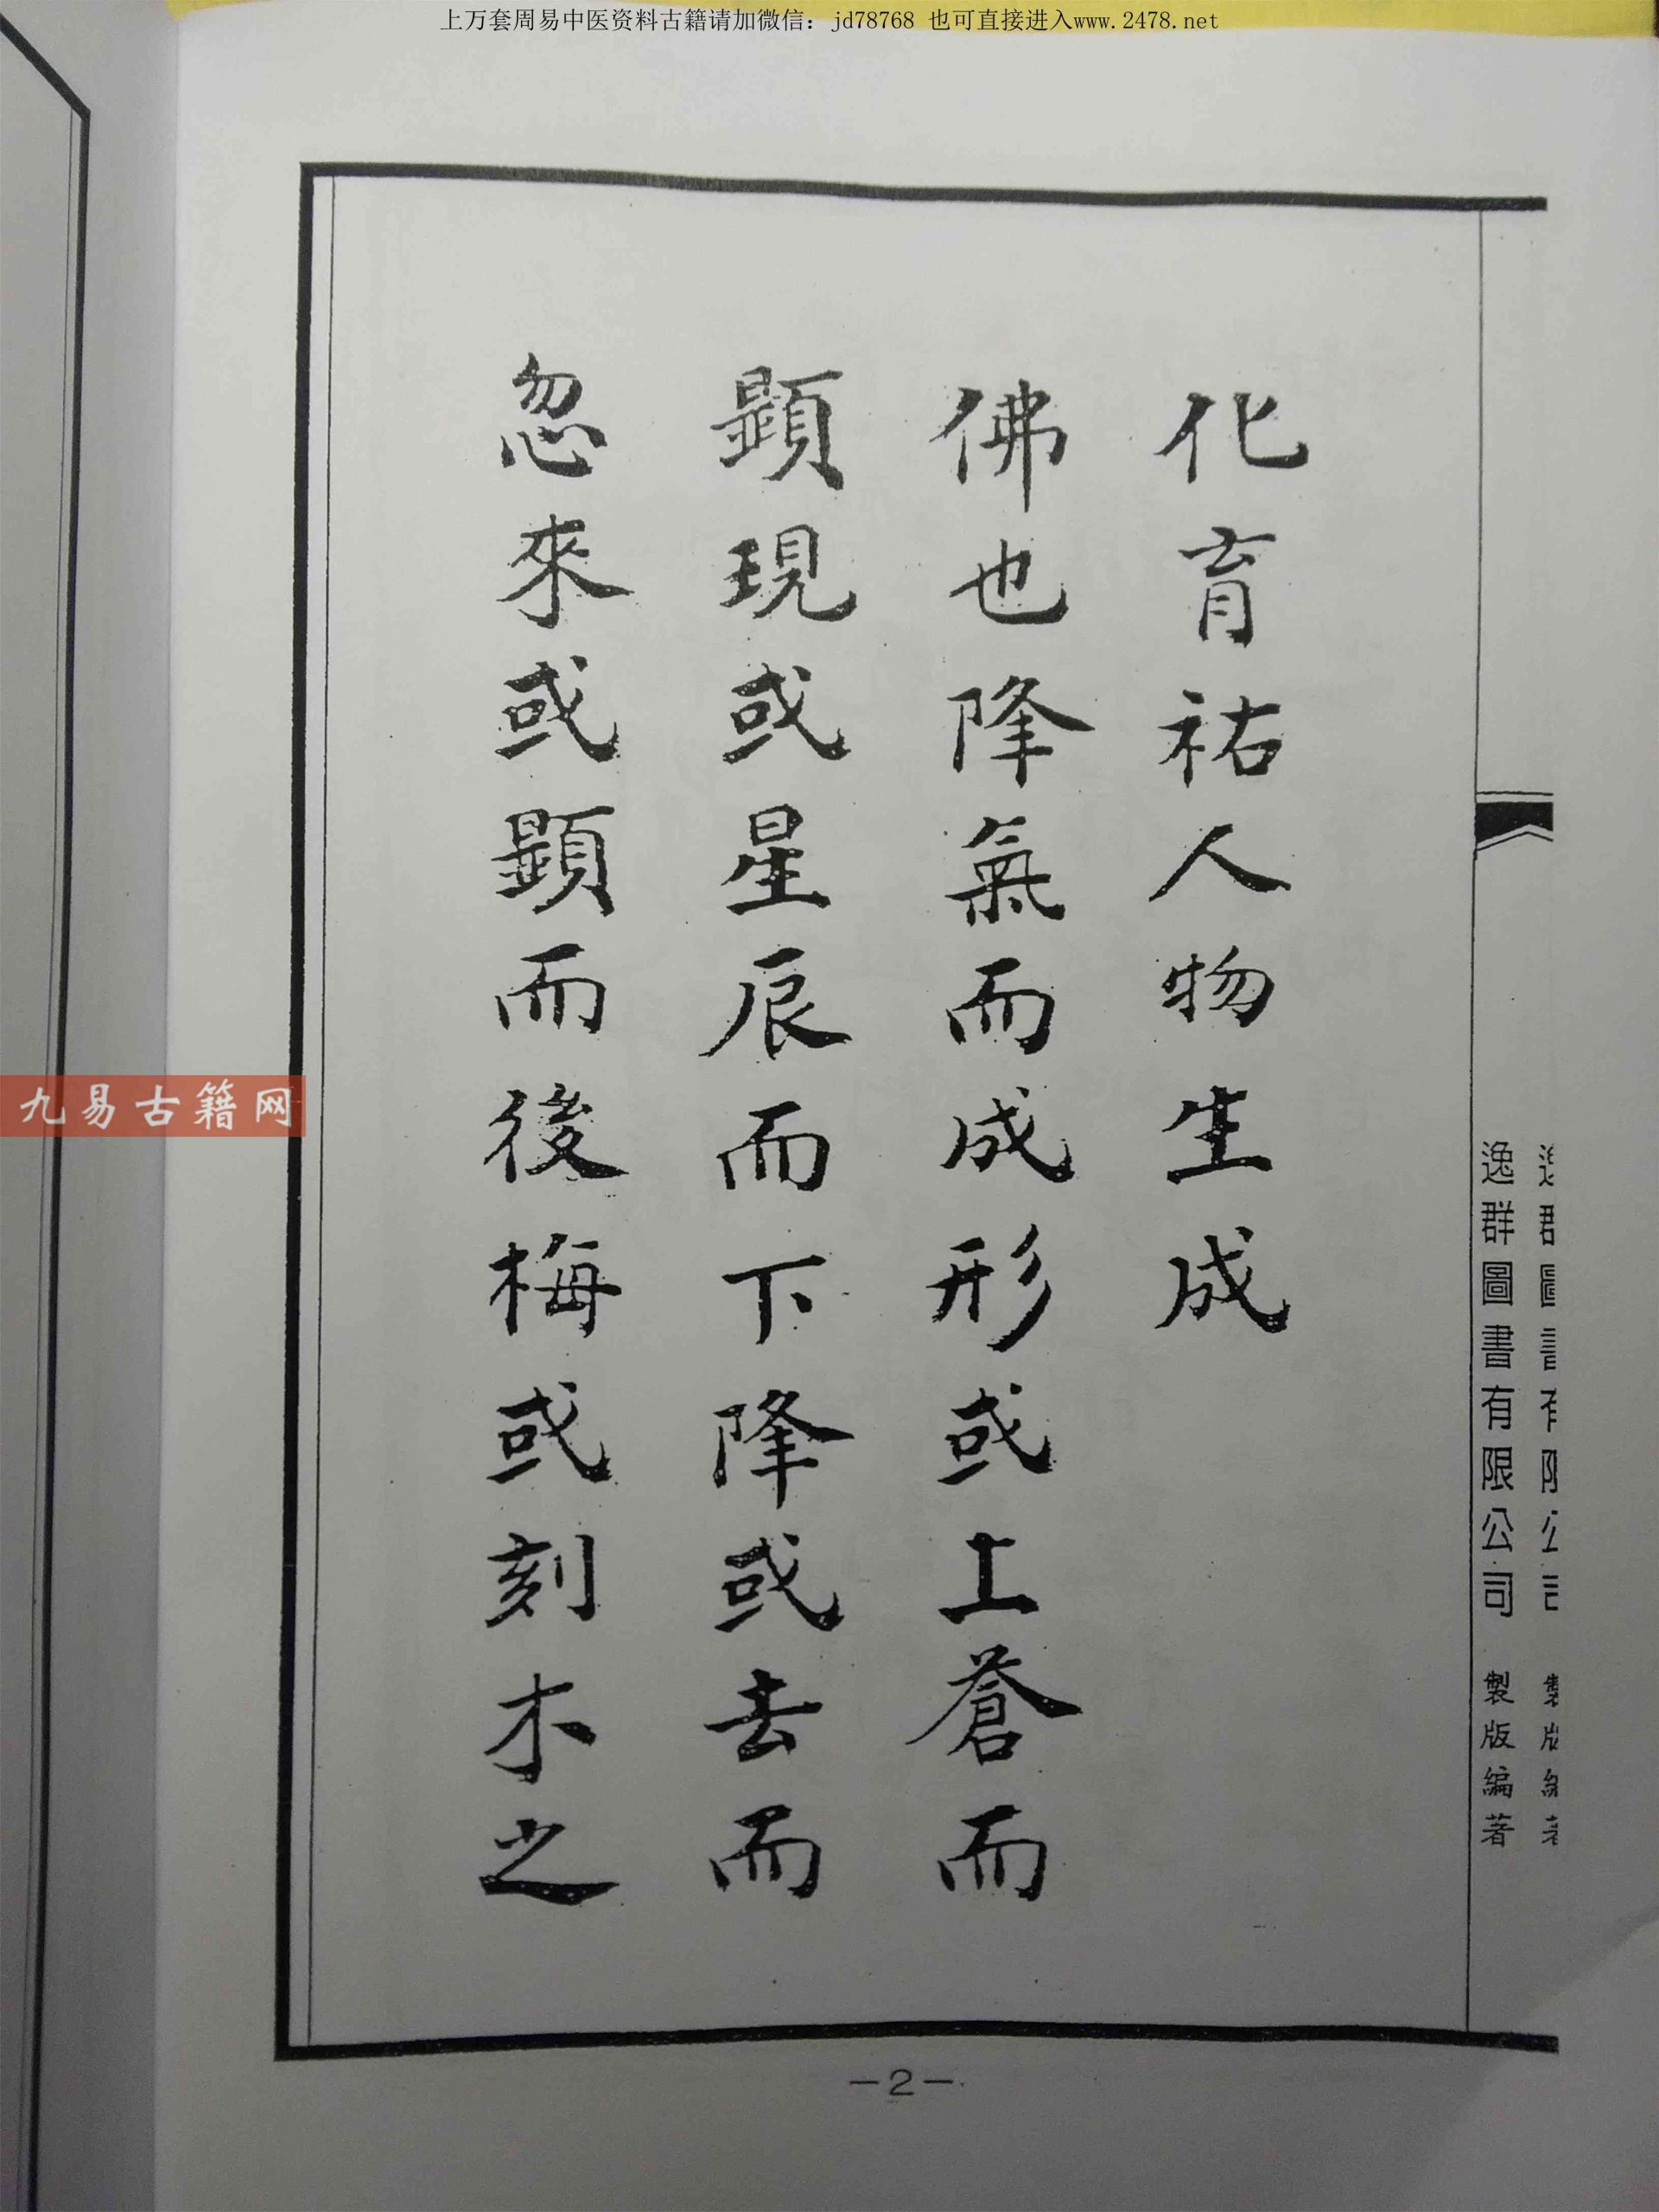 上万套周易中医资料古籍请加微信：jd78768 也可直接进入www.2478.net
化育祐人物生成
佛也降氣而成形或上蒼而
顕現或星辰而下降或去而
忽來或顕而後梅或刻木之
逸群圖書有限公司 製版編著
九易古籍网
－2－